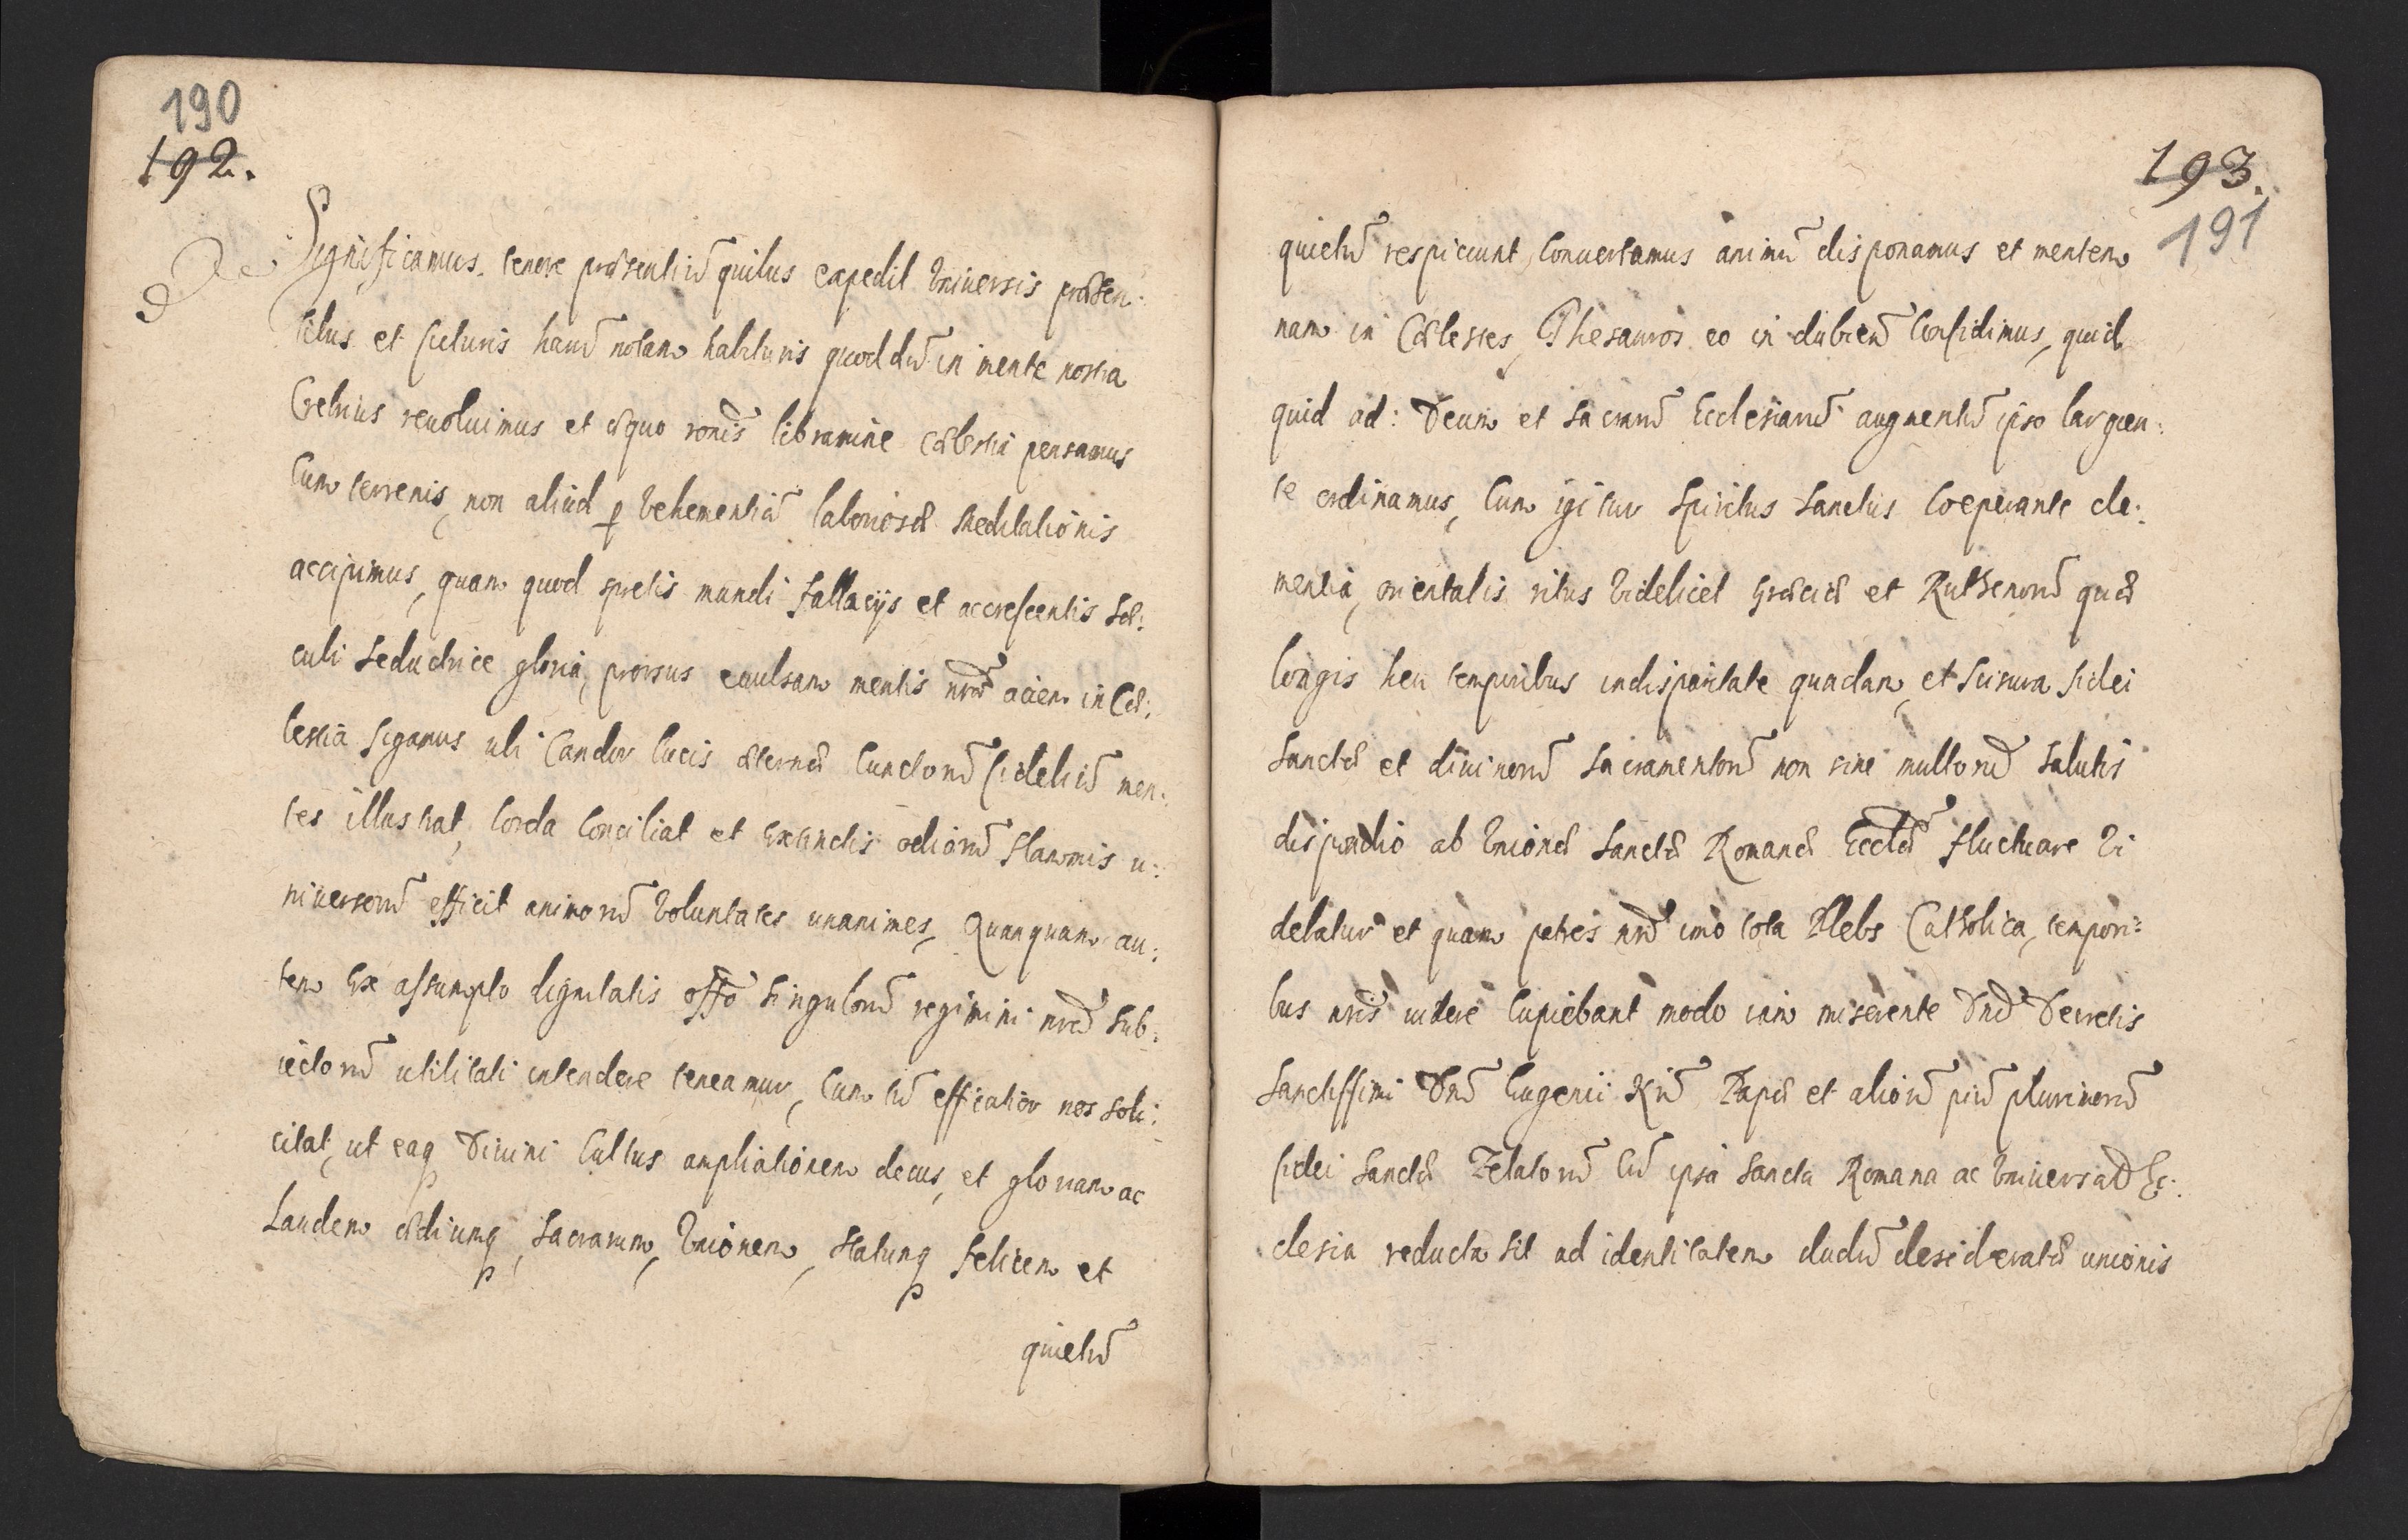 190
192.
Significamus tenore præsentiũ quibus expedit Universis præsen:
tibus et futuris harũ notam habituris quod dũ in mente nostra
Crebrius revoluimus et æquo ronis libramine cælestia pensamus
Cum terrenis, non aliud p vehementiã laboriosæ meditationis
accipimus, quam quod spretis mundi fallacijs et accrescentis sæ:
culi seductrice gloria, prorsus evulsam mentis nræ aciem in Cæ:
lestia figamus ubi Candor lucis æternæ Cunctorũ fideliũ men:
tes illustrat, Corda Conciliat et Extinctis odiorũ flammis u:
niversorũ efficit animorũ Voluntates unanimes, Quanquam au:
tem Ex assumpto dignitatis offo singulorũ regimini nro sub:
iectorũ utilitati intendere teneamur, Cum tũ efficatior nos soli:
citat, ut eaq Divini Cultus ampliationem decus, et gloriam ac
Laudem ædiumq, Sacrarum, Unionem, statumq felicem et
quietũ
193.
191
quietũ respiciunt, Convertamus animũ disponamus et mentem
nam in Cælestes Thesauros eo in dubieũ Confidimus, quid
quid ad: Deum et sacrarũ Ecclesiarũ augmentũ ipso largien:
te ordinamus, Cum igitur Spiritus Sanctus Coeperante cle:
mentia, orientalis ritus Videlicet Græciæ et Ruthenorũ quæ
longis heu temporibus indisparitate quadam, et scisura fidei
Sanctæ et divinorũ Sacramentorũ non sine multorũ salutis
dispendio ab Unionæ Sanctæ Romanæ Ecclæ fluctuare Vi
debatur et quam patres nrĩ imo tota Plebs Catholica, tempori:
bus nris videre Cupiebant modo iam miserente Dno Decretis
Sanctissimi Dni Eugenii Papæ et aliorũ plurimorũ
fidei Sanctæ Zelatorũ Cũ ipsa Sancta Romana ac Universali Ec:
clesia reducta sit ad identitatem dudũ desideratæ unionis